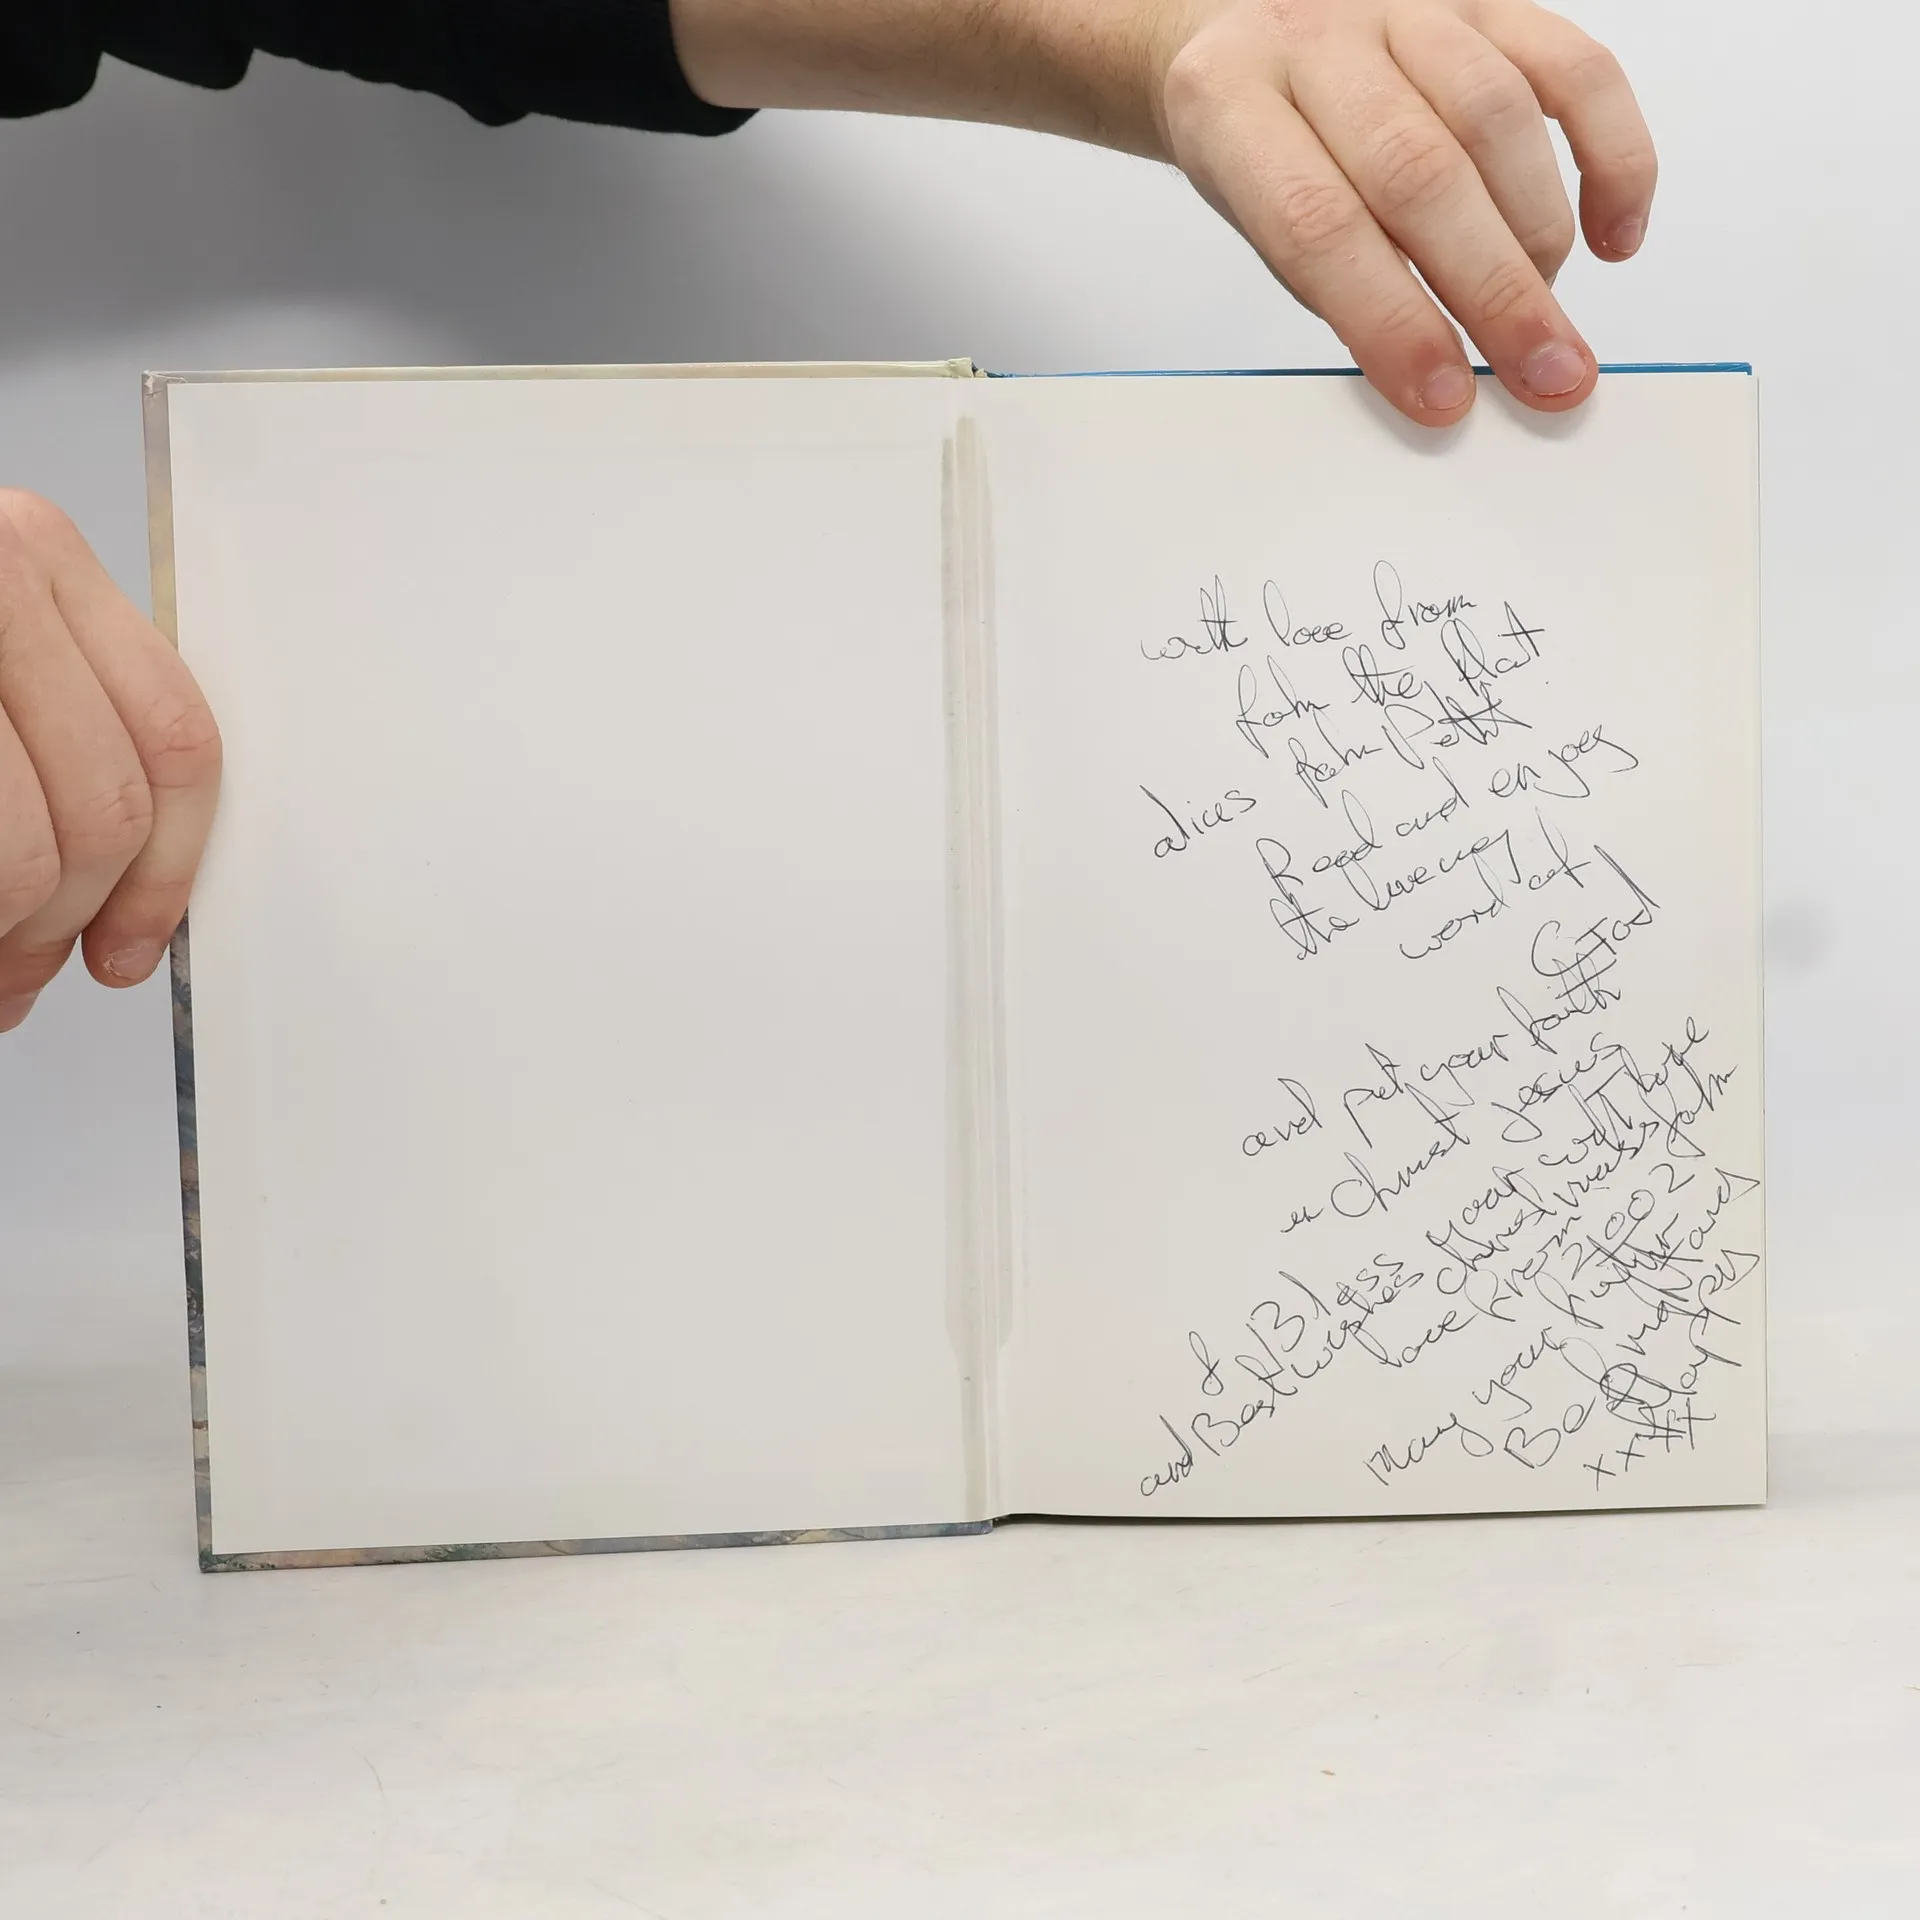 with love from
John the flat
alices John Pettit
Read and enjoy
the liveing
word of
God
and put your faith
in Christ Jesus
I Bless your with love
and Best wishes Christmass John
love from 2002
May your faith
Be and
xxx xx